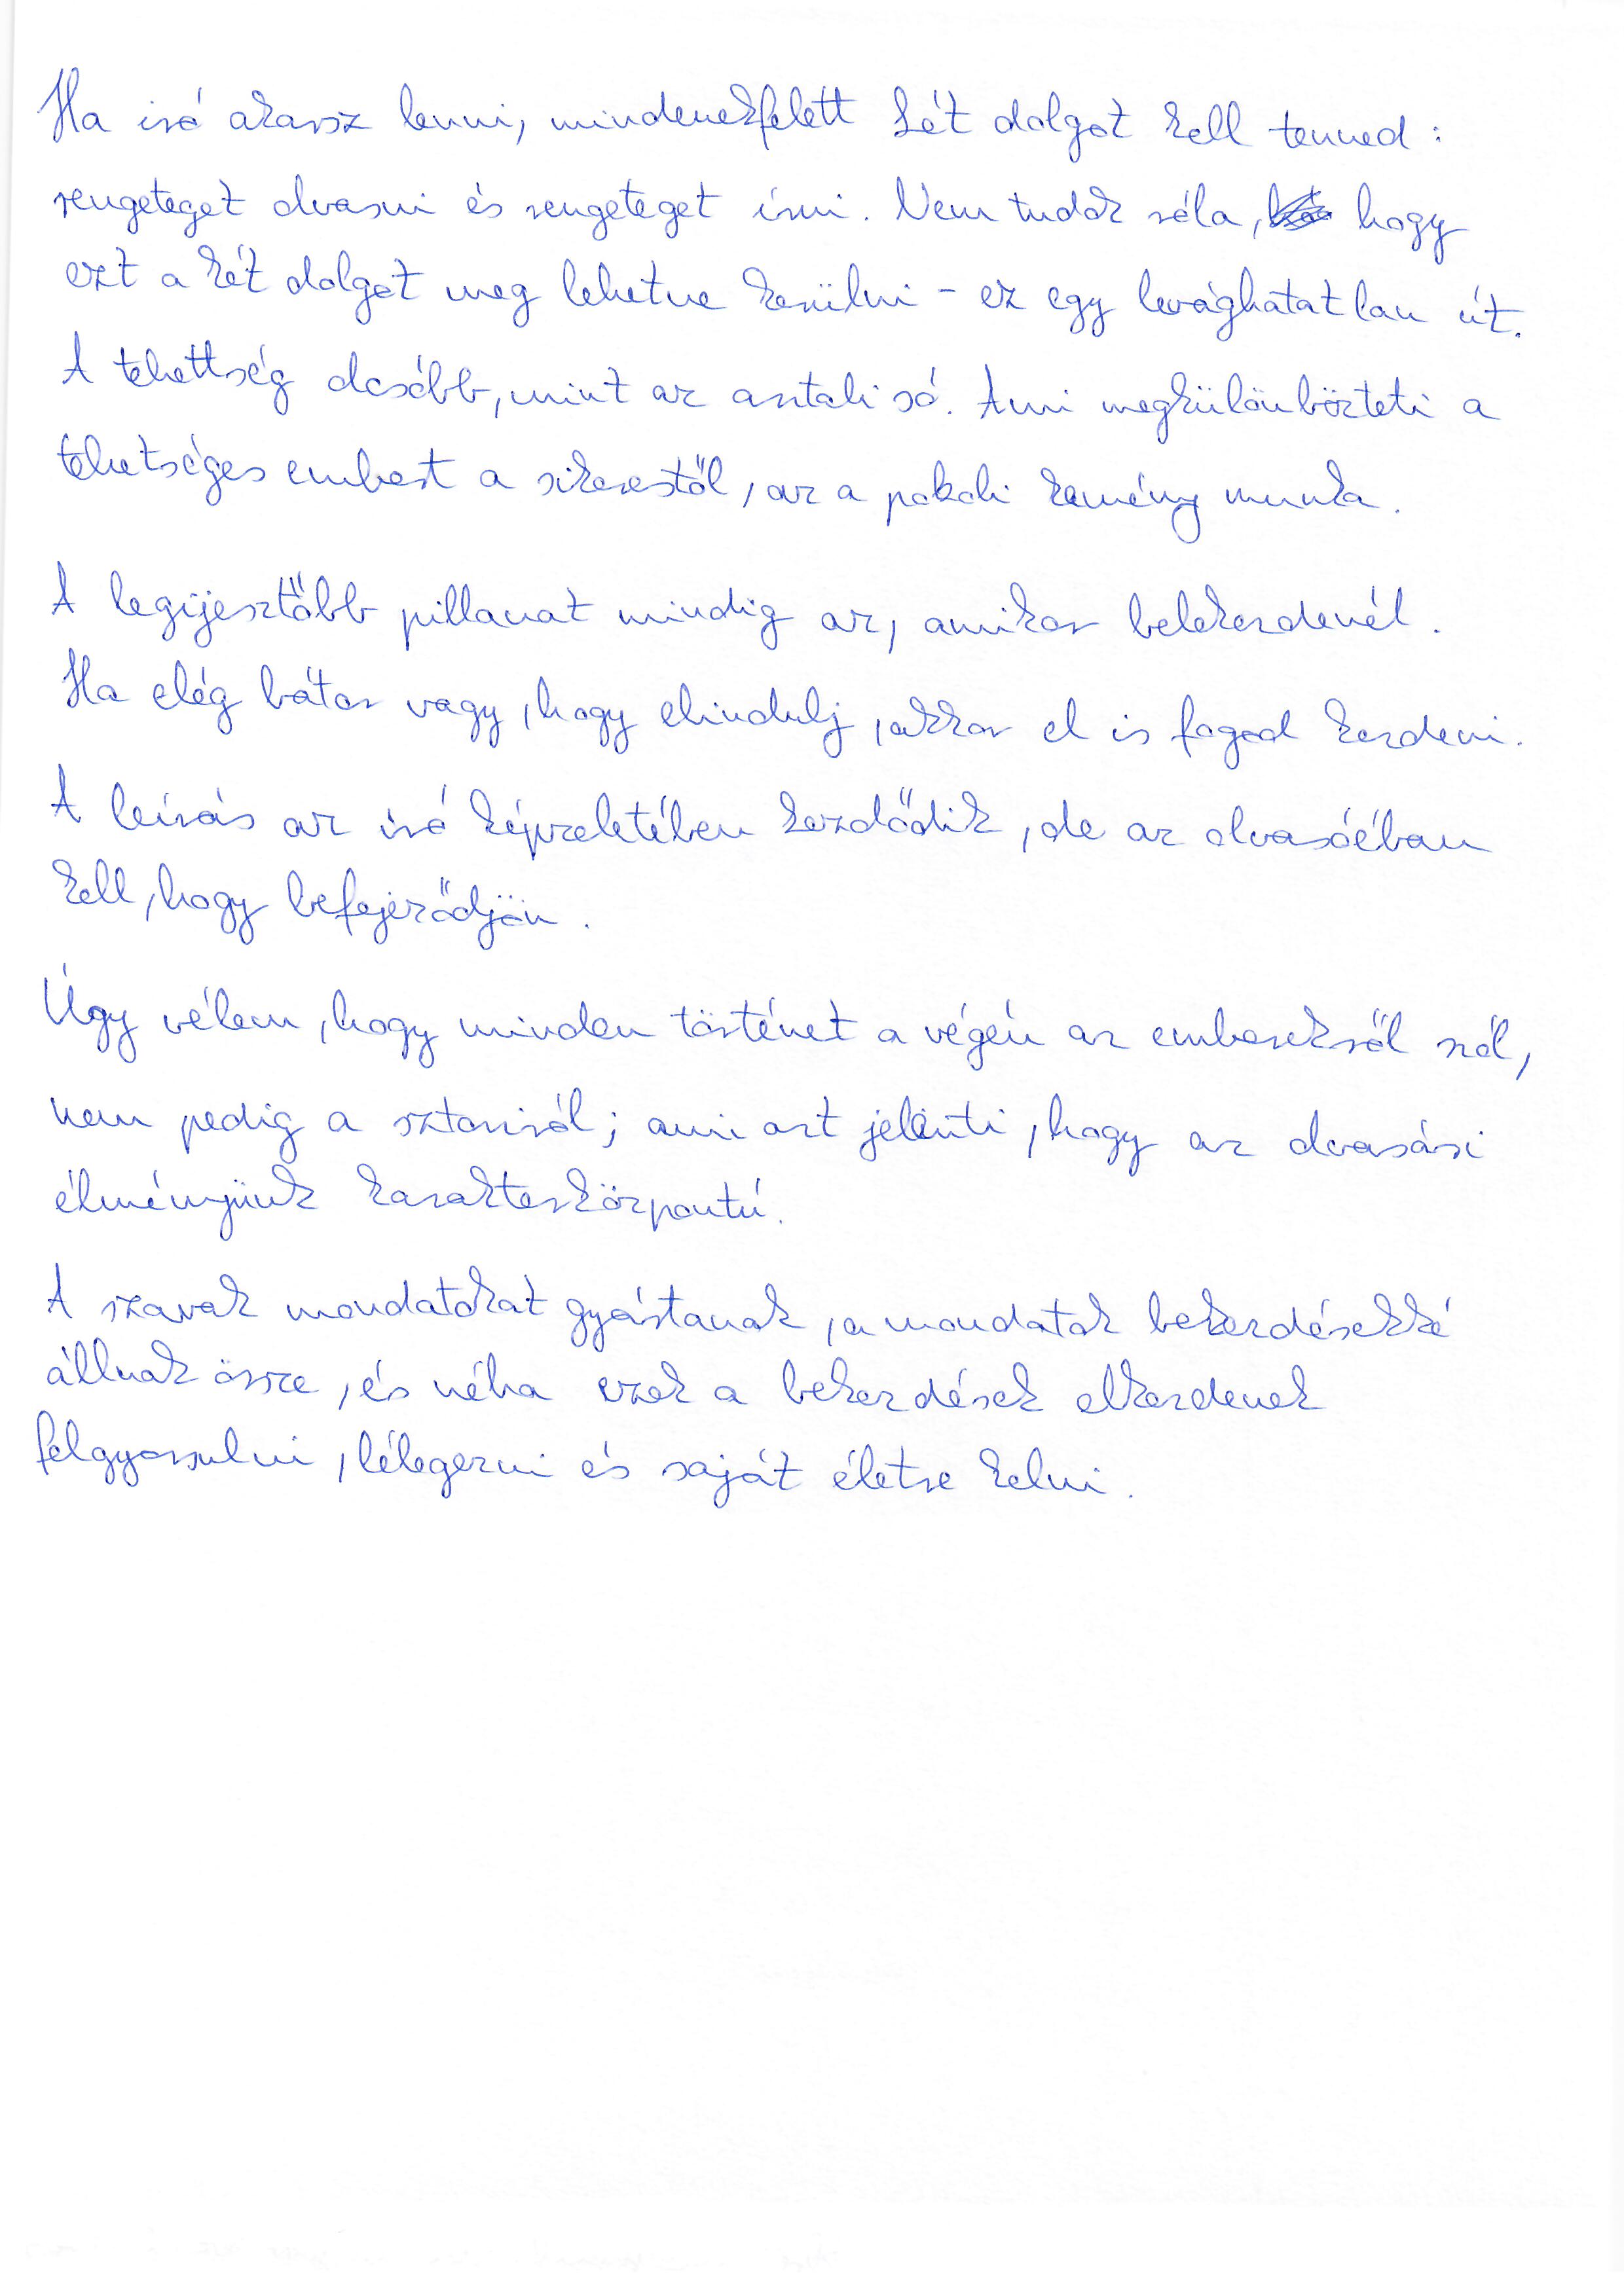 Ha író akarsz lenni, mindenekfelett két dolgot kell tenned:
rengeteget olvasni és rengeteget írni. Nem tudok róla, hogy
ezt a két dolgot meg lehetne kerülni - ez egy levághatatlan út.
A tehettség olcsóbb, mint az asztali só. Ami megkülönbözteti a
tehetséges embert a sikerestől, az a pokoli kemény munka.
A legijesztőbb pillanat mindig az, amikor belekezdenél.
Ha elég bátor vagy, hogy elindulj, akkor el is fogod kezdeni.
A leírás az író képzeletében kezdődik, de az olvasóéban
kell, hogy befejeződjön.
Úgy vélem, hogy minden történet a végén az emberekről szól,
nem pedig a sztoriról; ami azt jelenti, hogy az olvasási
élményünk karakterközpontú.
A szavak mondatokat gyártanak, a mondatok bekezdésekké
állnak össze, és néha ezek a bekezdések elkezdenek
felgyorsulni, lélegezni és saját életre kelni.